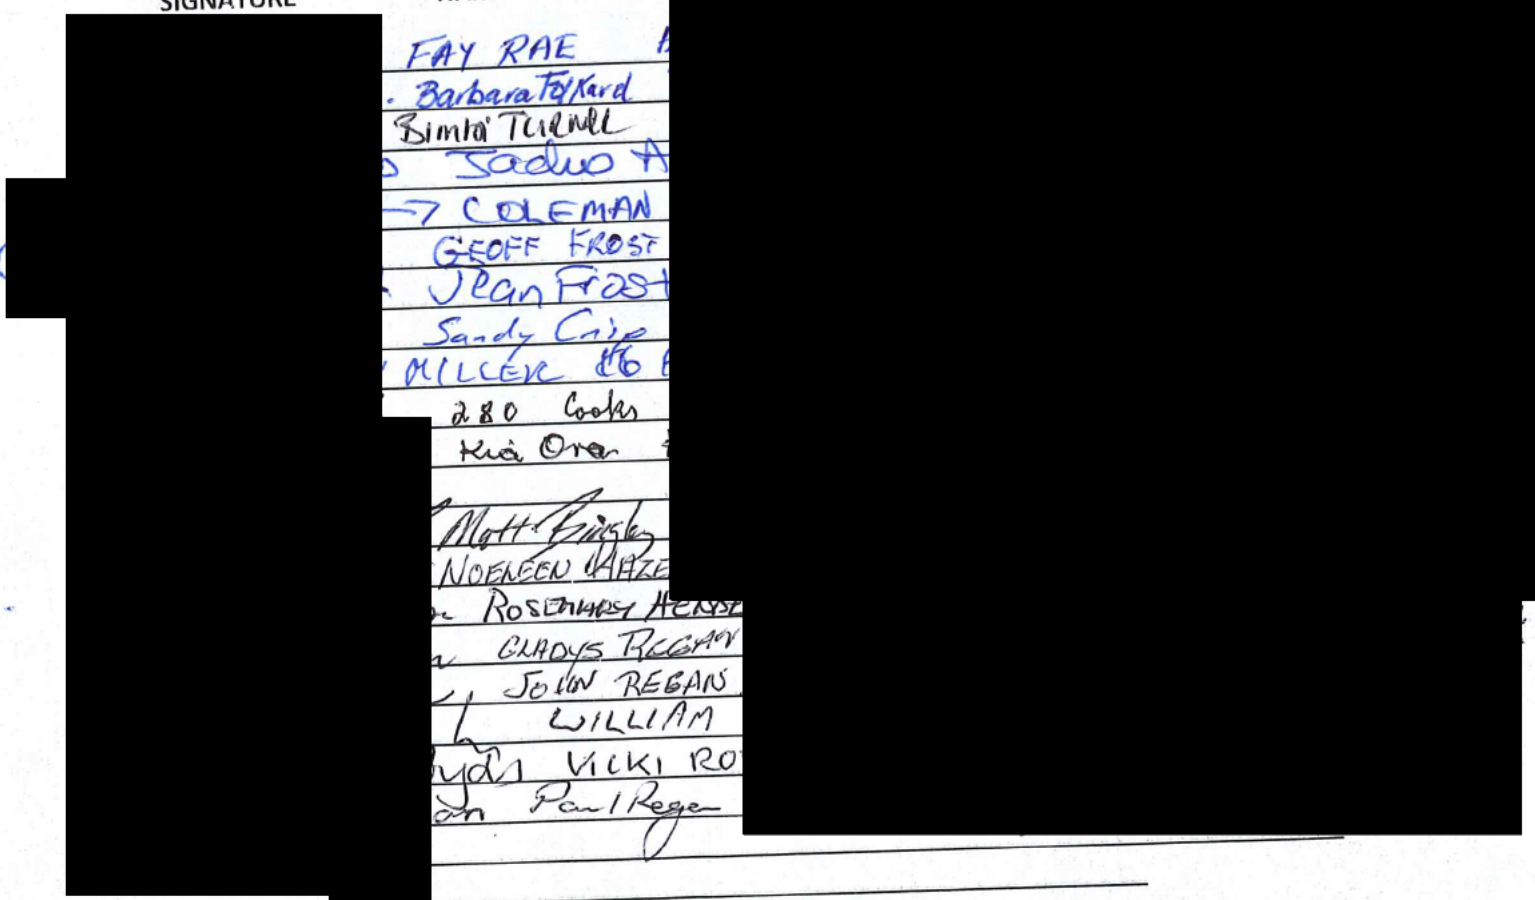 SIGNATURE
FAY RAE
Barbara Folkard
Bimla TURNER
Jadwo A
→ COLEMAN
GEOFF FROST
Jean Frost
Sandy Crisp
MILLER 46
280 Cooks
Kia Ora
Matt Bingley
NOELEEN HAZE
ROSEMARY HENSE
GLADYS REGAN
JOHN REGAN
WILLIAM
VICKI RO
an Paul Regan